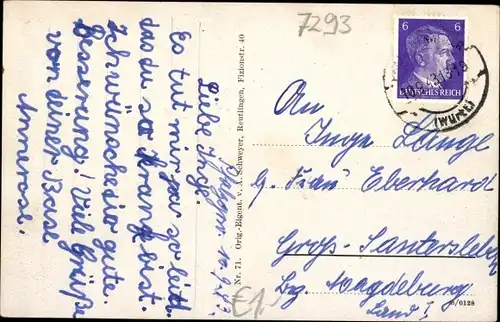 7293
6 6
DEUTSCHES REICH
(Württ)
Liebe Inge.
Es tut mir gar so leid
das du so krank bist.
Ich wünsche dir gute
Besserung! Viele Grüße
von deiner Base
Annerose.
Nr. 71. Orig.-Eigent. v. A. Schweyer, Reutlingen, Fizionstr. 40
An
Inge Lange
b. Frau Eberhard
Groß-Santersleben
Bez. Magdeburg
Land!
€1.-
/0128